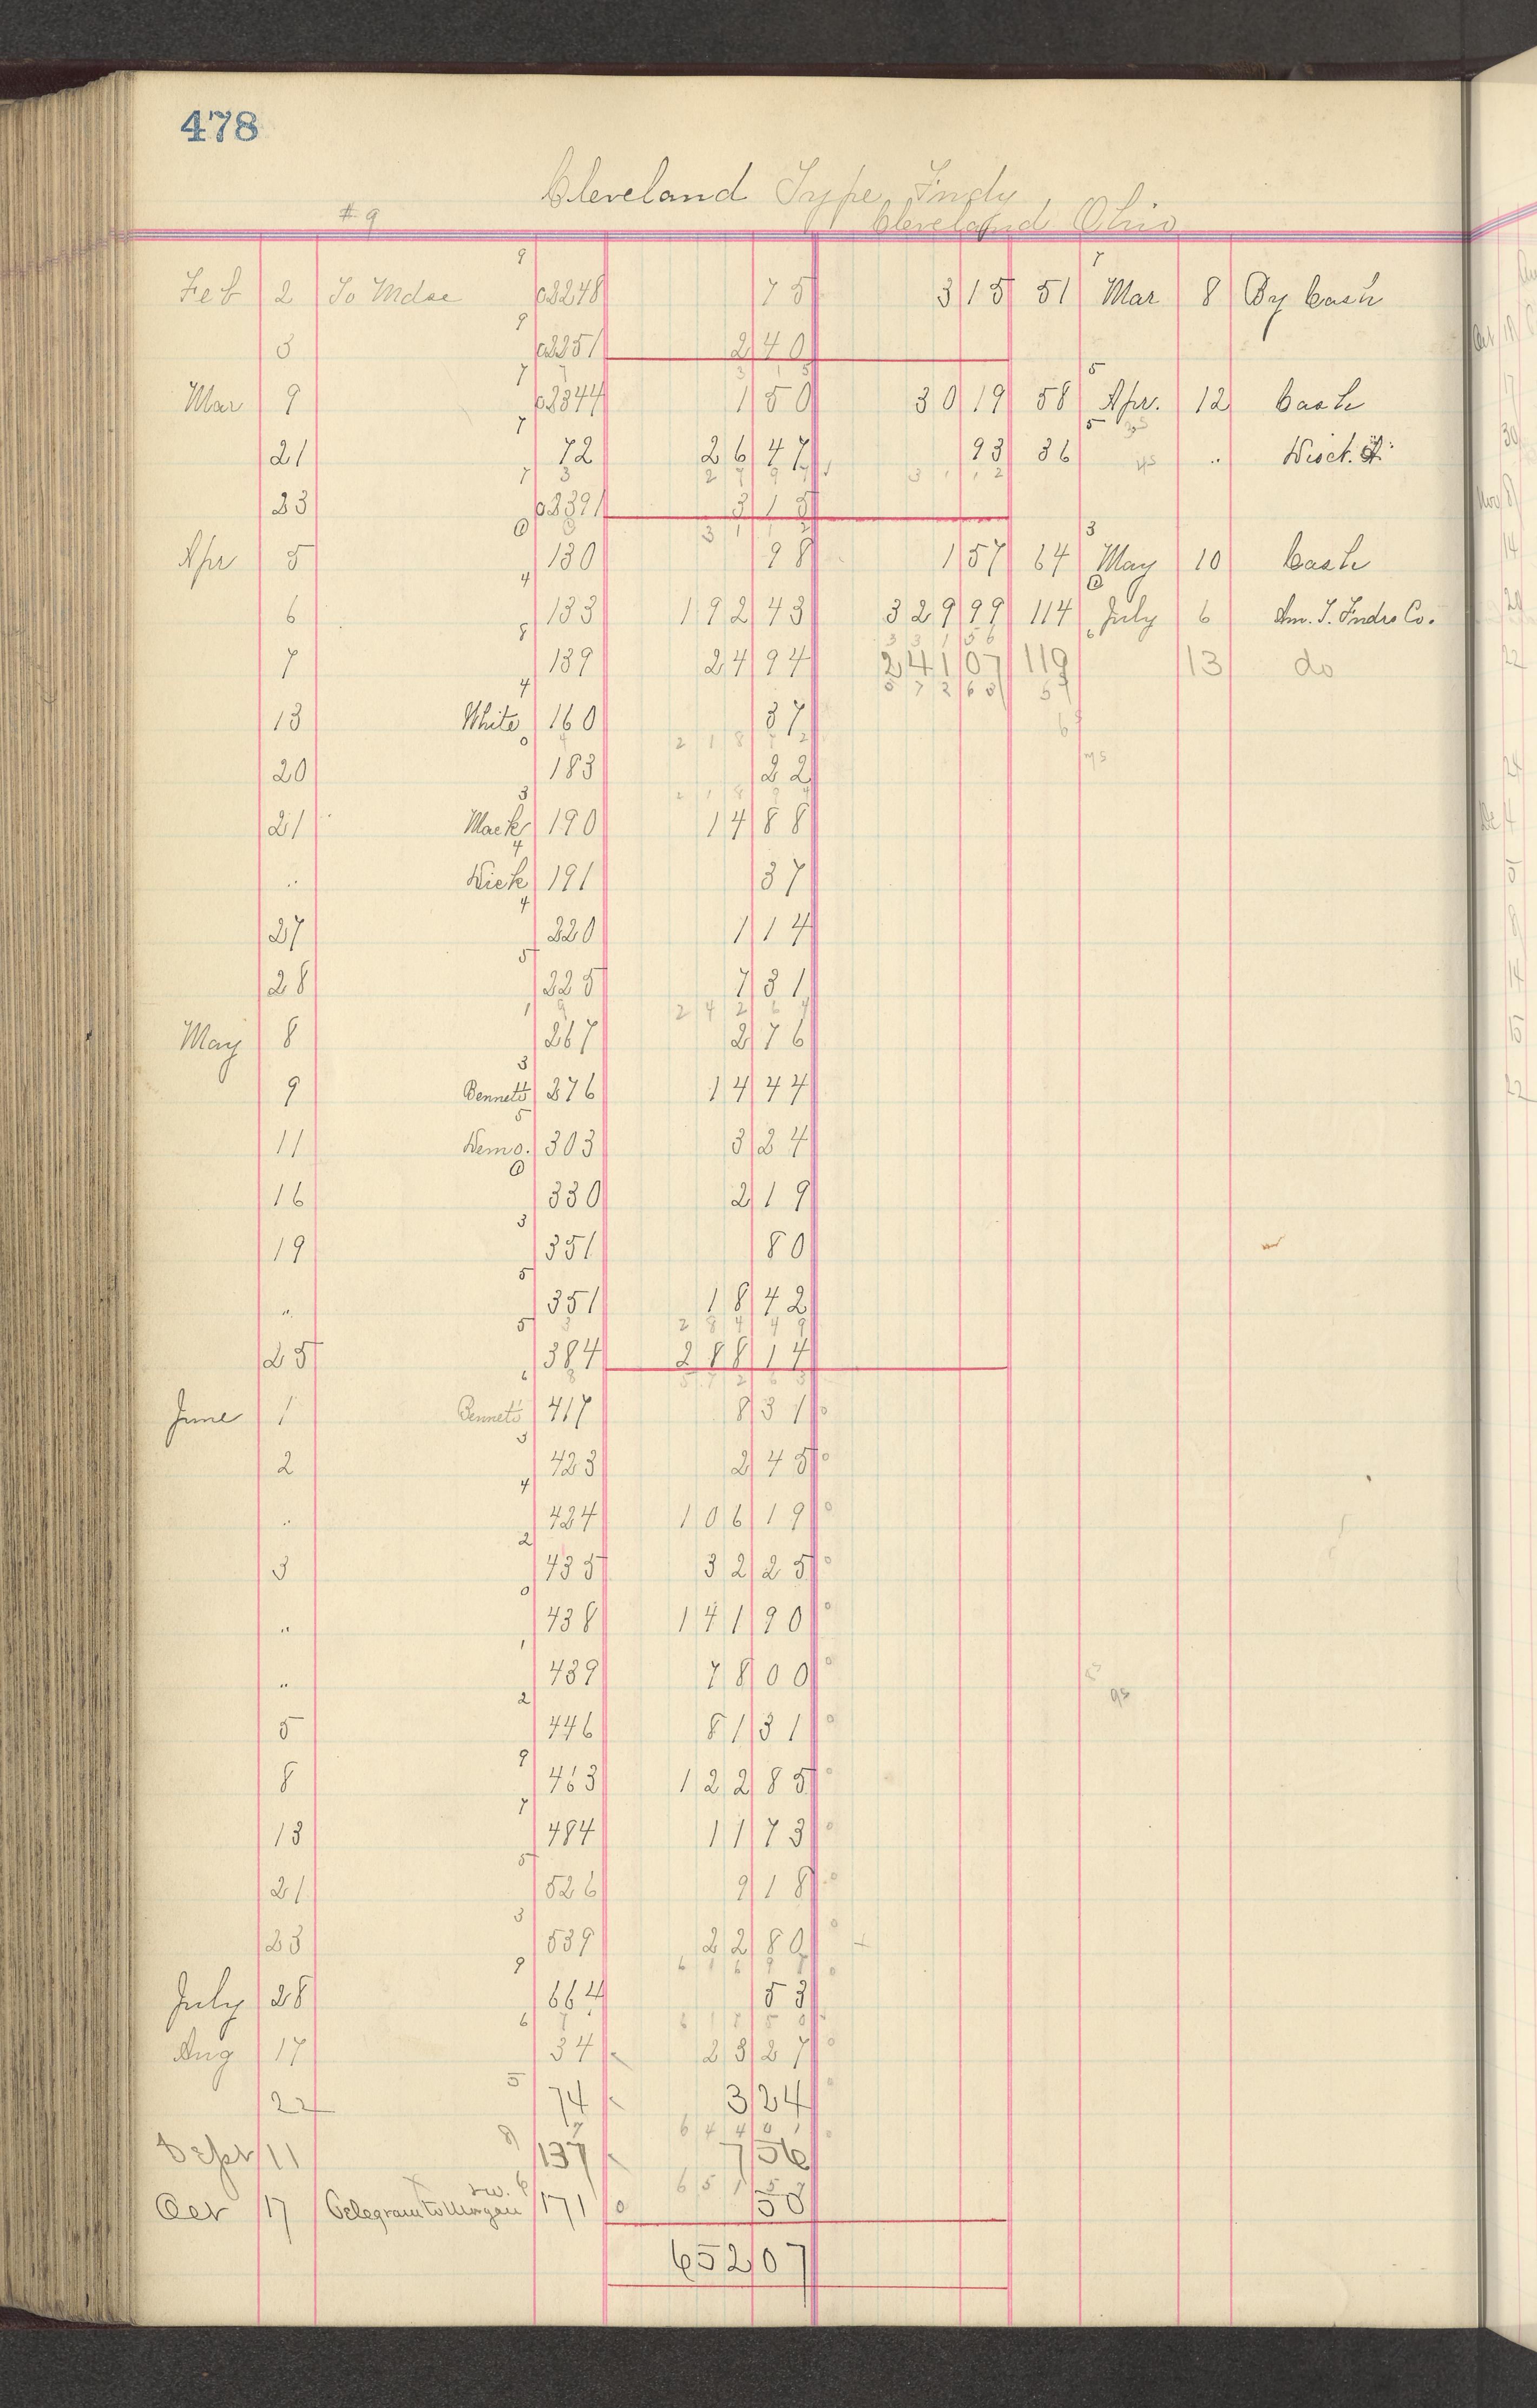 478
Cleveland Type Fndy
# 9 Cleveland Ohio
Feb 2 To Mdse 63248 75 3 15 51 Mar 8 By Cash
3 63251 2 40
Mar 9 63344 1 50 30 19 58 Apr. 12 Cash
21 72 26 47 93 36 " Disct.
23 63391 3 15
Apr 5 130 98 1 57 64 May 10 Cash
6 133 192 43 329 99 114 July 6 Am. T. Fndrs Co.
7 139 24 94 241 07 119 13 do
13 White 160 37
20 183 22
21 Mack 190 14 88
" Dick 191 37
27 220 1 14
28 225 7 31
May 8 267 2 76
9 Bennett 276 14 44
11 Demo. 303 3 24
16 330 2 19
19 351 80
" 351 18 42
25 384 288 14
June 1 Bennett 417 8 31
2 423 2 45
" 424 106 19
3 435 32 25
" 438 141 90
" 439 78 00
5 446 81 31
8 463 122 85
13 484 11 73
21 526 9 18
23 539 22 80
July 28 664 53
Aug 17 34 23 27
22 74 3 24
Sept 11 137 7 56
Oct 17 Telegram to Morgan 171 50
652 07